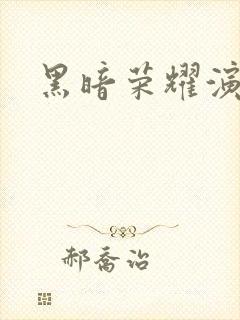 黑暗荣耀演
郝乔治